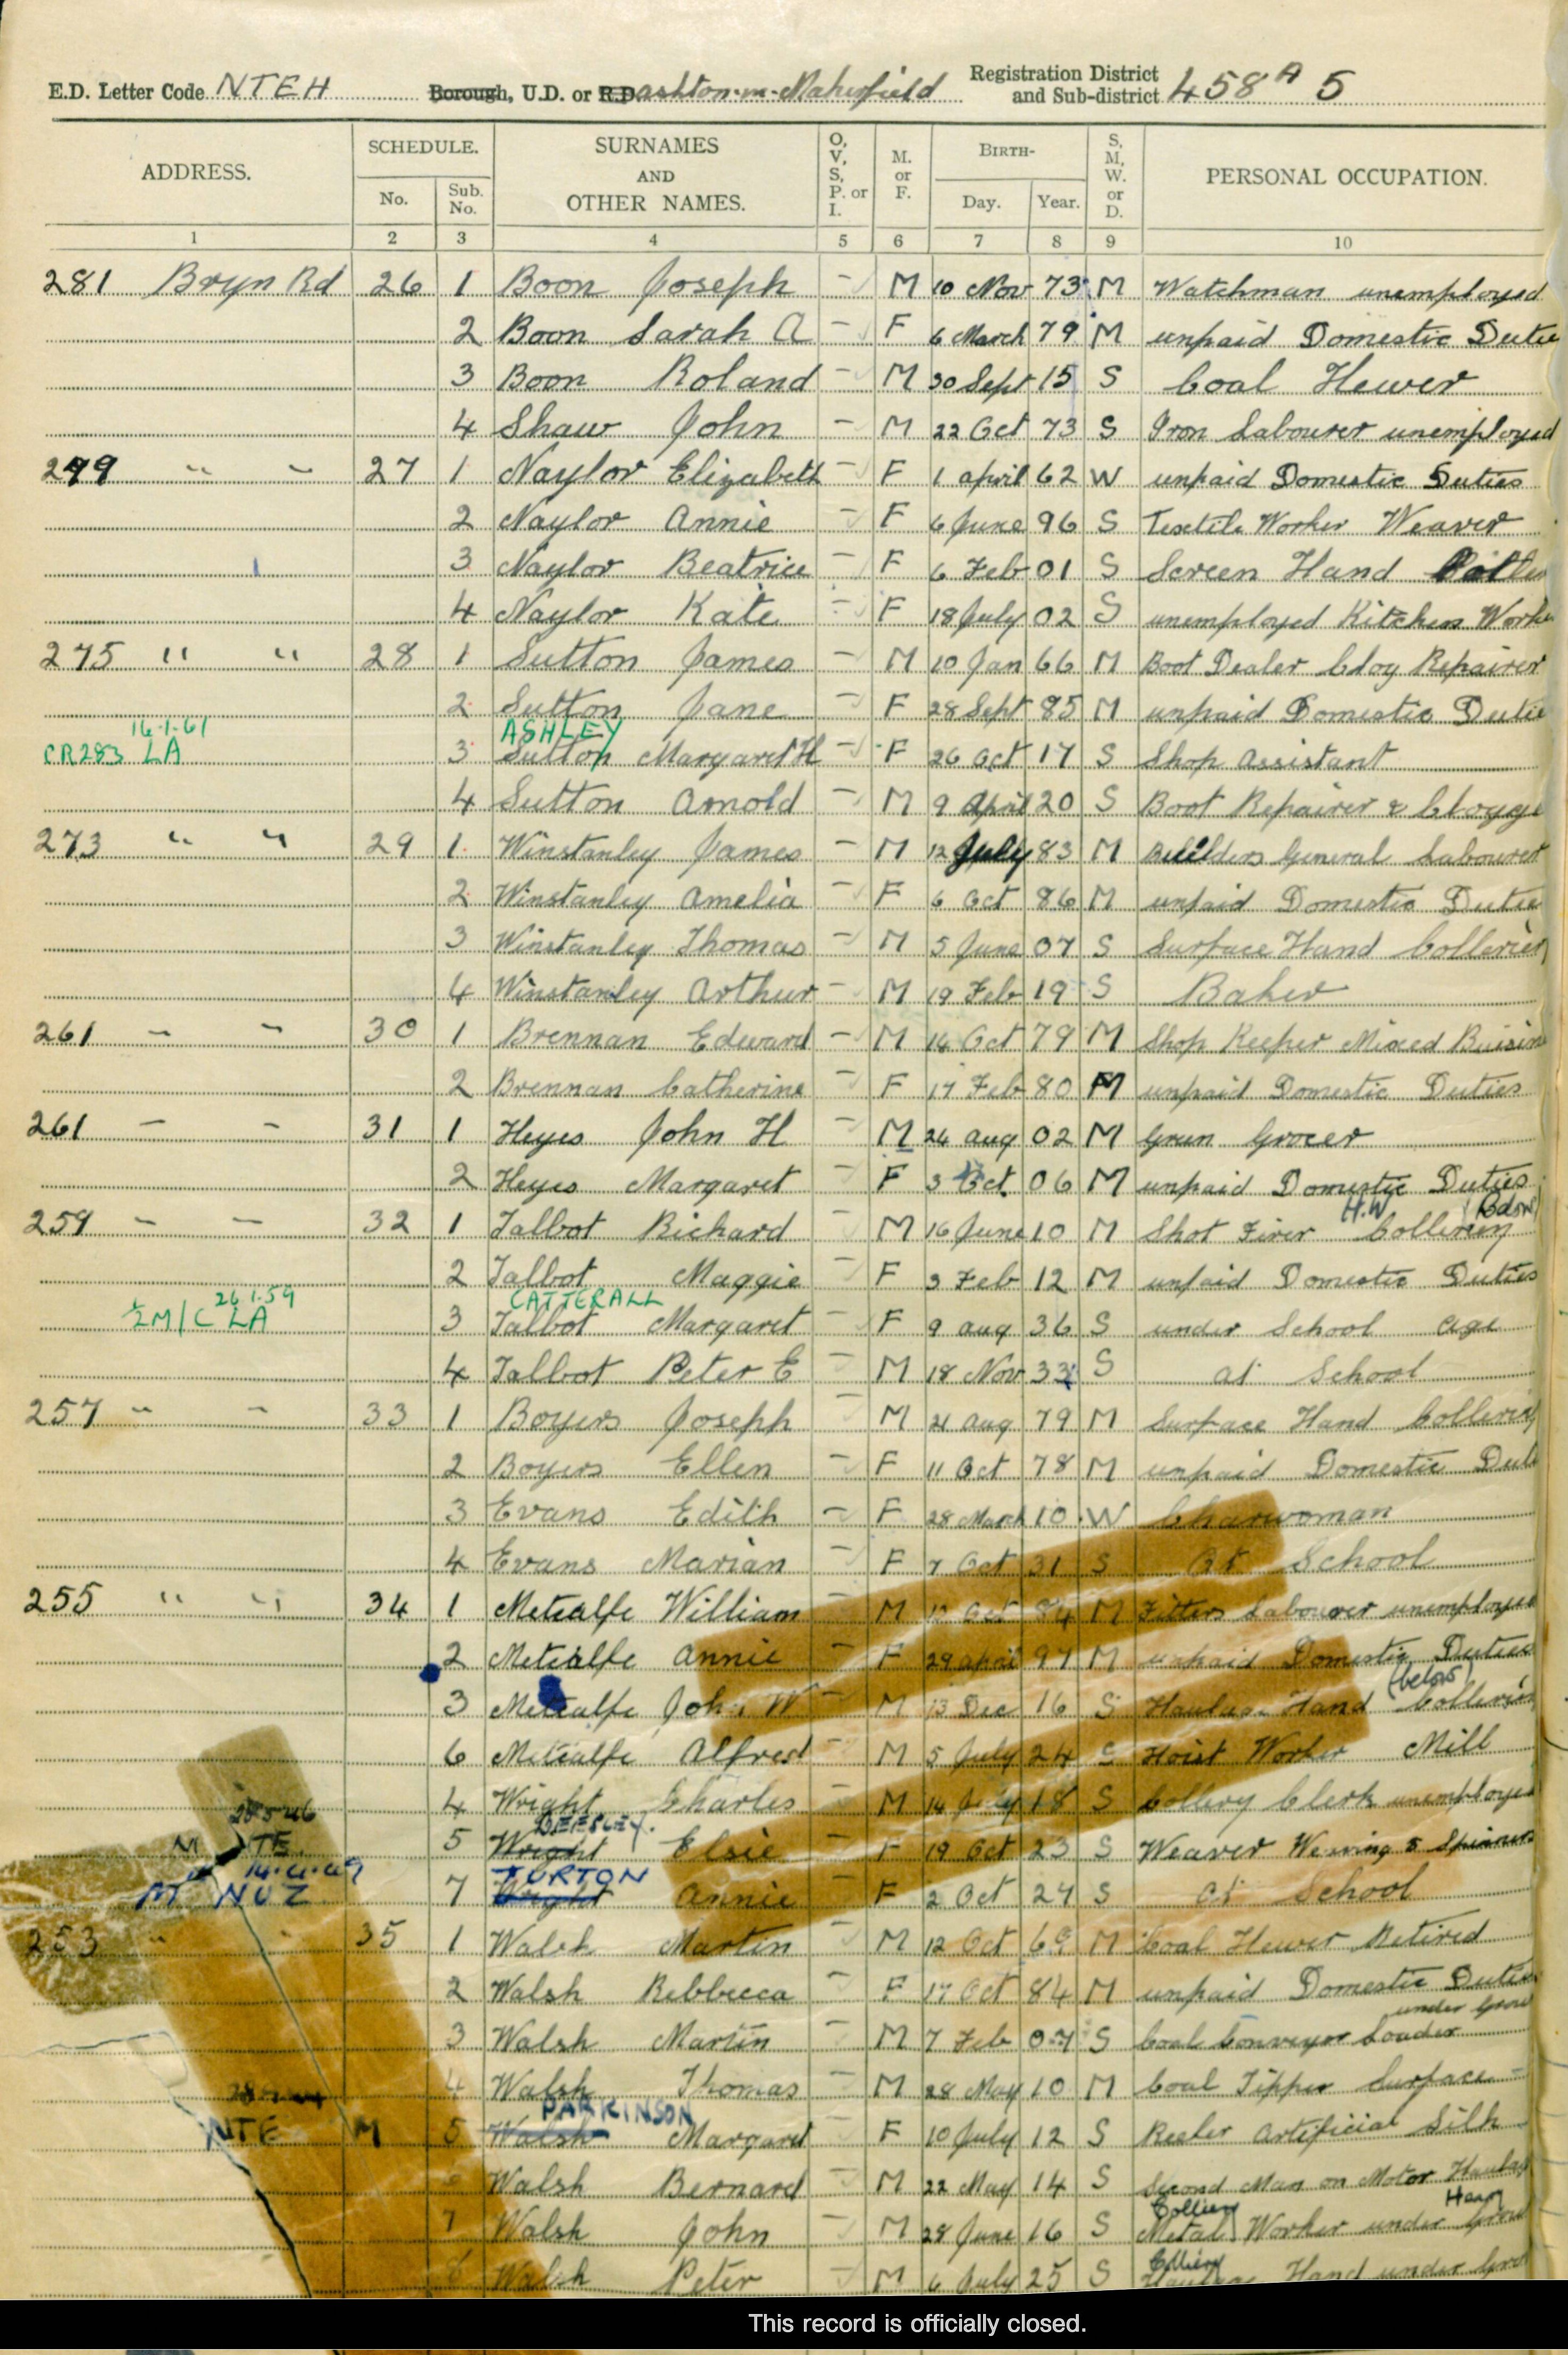 E.D. Letter Code NTEH Borough, U.D. or R.D. Ashton-in-Makerfield Registration District and Sub-district 458A 5
ADDRESS. SCHEDULE. No. Sub. No. SURNAMES AND OTHER NAMES. O, V, S, P. or I. M. or F. BIRTH- Day. Year. S, M, W. or D. PERSONAL OCCUPATION.
1 2 3 4 5 6 7 8 9 10
281 Bryn Rd 26 1 Boon Joseph - M 10 Nov 73 M Watchman unemployed
2 Boon Sarah A - F 6 March 79 M unpaid Domestic Dutie
3 Boon Roland - M 30 Sept 15 S Coal Hewer
4 Shaw John - M 22 Oct 73 S Iron Labourer unemployed
279 " - 27 1 Naylor Elizabeth - F 1 April 62 W unpaid Domestic Duties
2 Naylor Annie - F 6 June 96 S Textile Worker Weaver
3 Naylor Beatrice - F 6 Feb 01 S Screen Hand
4 Naylor Kate - F 18 July 02 S unemployed Kitchen Worke
275 " " 28 1 Sutton James - M 10 Jan 66 M Boot Dealer Clog Repairer
2 Sutton Jane - F 28 Sept 85 M unpaid Domestic Dutie
16.1.61 ASHLEY
CR283 LA 3 Sutton Margaret H - F 26 Oct 17 S Shop Assistant
4 Sutton Arnold - M 9 April 20 S Boot Repairer & Clogge
273 " " 29 1 Winstanley James - M 12 July 83 M Builders General Labourer
2 Winstanley Amelia - F 6 Oct 86 M unpaid Domestic Dutie
3 Winstanley Thomas - M 5 June 07 S Surface Hand Colleries
4 Winstanley Arthur - M 19 Feb 19 S Baker
261 - - 30 1 Brennan Edward - M 14 Oct 79 M Shop Keeper Mixed Buisin
2 Brennan Catherine - F 17 Feb 80 M unpaid Domestic Duties
261 - - 31 1 Heyes John H - M 24 Aug 02 M Green Grocer
2 Heyes Margaret - F 3 Oct 06 M unpaid Domestic Duties
H.W
259 - - 32 1 Talbot Richard - M 16 June 10 M Shot Firer Colliery
2 Talbot Maggie - F 3 Feb 12 M unpaid Domestic Duties
26.1.59 CATTERALL
M/C LA 3 Talbot Margaret F 9 Aug 36 S under School Age
4 Talbot Peter E - M 18 Nov 33 S at School
257 " - 33 1 Boyers Joseph M 21 Aug 79 M Surface Hand Colleries
2 Boyers Ellen - F 11 Oct 78 M unpaid Domestic Duti
3 Evans Edith - F 28 March 10 W Charwoman
4 Evans Marian - F 7 Oct 31 S At School
255 " " 34 1 Metcalfe William M Oct M Fitters Labourer unemployed
2 Metcalfe Annie - F 29 April 97 M unpaid Domestic Duties
(below)
3 Metcalfe John W - M 13 Dec 16 S Haulage Hand Colleries
6 Metcalfe Alfred - M 5 July 24 S Hoist Worker Mill
4 Wright Charles - M 14 July 18 S Collery Clerk unemployed
28.5.46 BEESLEY.
M TE 5 Wright Elsie - F 19 Oct 23 S Weaver Weaving & Spinners
14.4.49 TURTON
M NUZ 7 Wright Annie - F 2 Oct 27 S At School
253 " " 35 1 Walsh Martin - M 12 Oct 69 M Coal Hewer Retired
2 Walsh Rebbecca - F 17 Oct 84 M unpaid Domestic Duties
under Grou
3 Walsh Martin - M 7 Feb 07 S Coal Conveyor Loader
4 Walsh Thomas - M 28 May 10 M Coal Tipper Surface
PARKINSON
NTE M 5 Walsh Margaret F 10 July 12 S Reeler Artificial Silk
6 Walsh Bernard - M 22 May 14 S Second Man on Motor Haulag
Colliery Heavy
7 Walsh John - M 28 June 16 S Metal Worker under Grou
Colliery
8 Walsh Peter - M 6 July 25 S Haulage Hand under Grou
This record is officially closed.